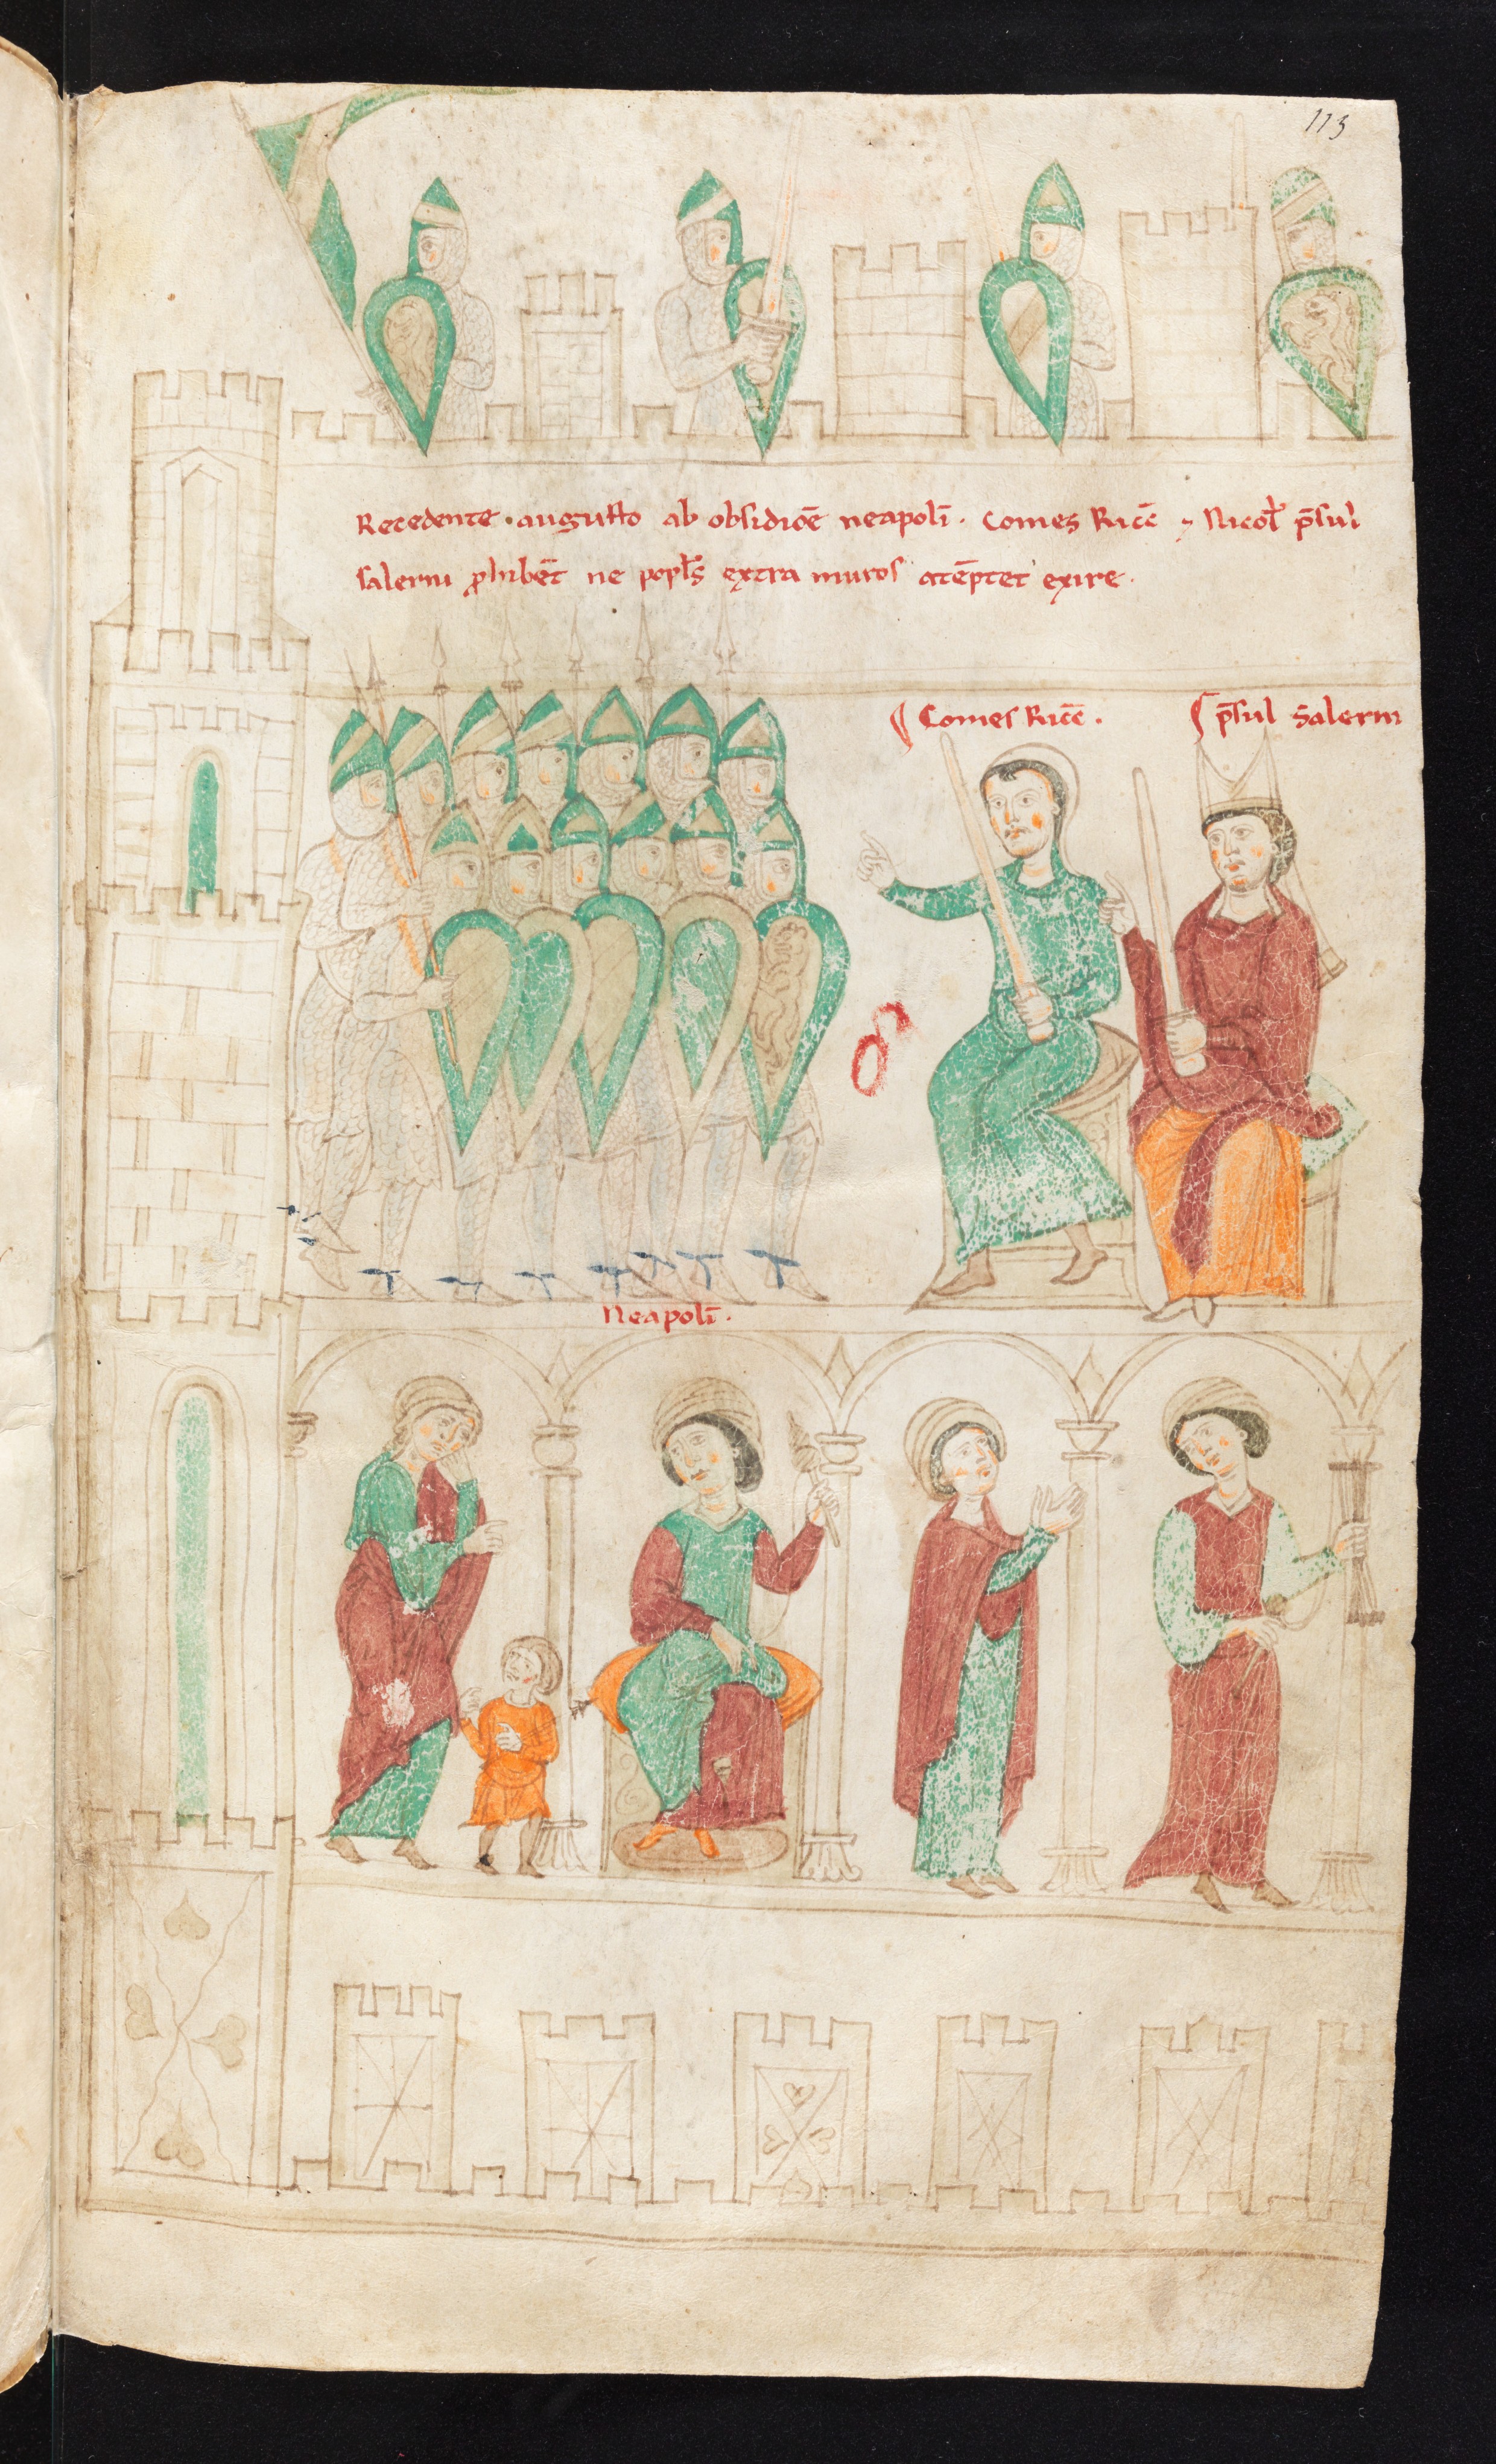 113
Recedente . augusto ab obsidiōe neapolī . Comes Ricc̄ ⁊ Nicol̄ p̄sul
salerni ꝓhibēt ne popl̄s extra muros atēptet exire .
Comes Ricc̄ .
p̄sul Salerni
Neapolī .